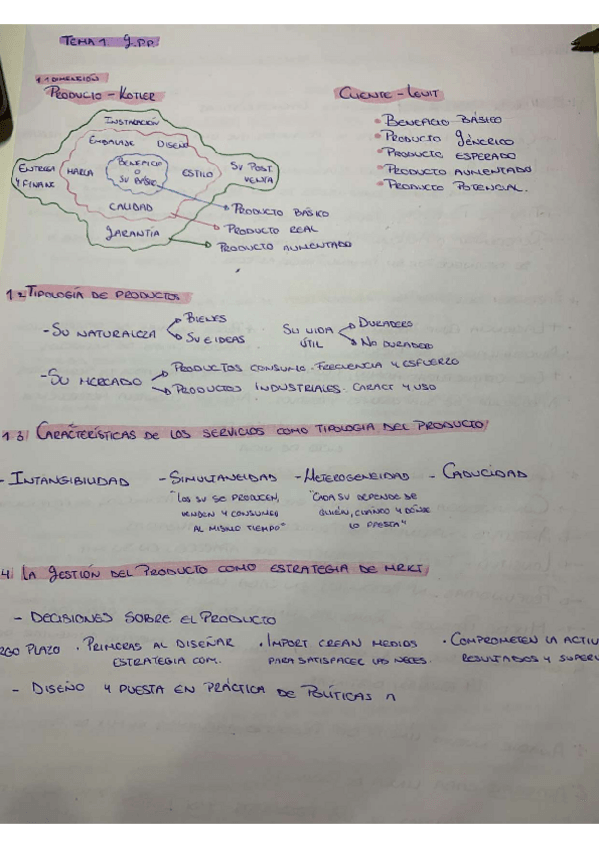 TEMA 1. G.PP.
1.1 DIMENSIÓN
PRODUCTO - KOTLER
CLIENTE - LEVIT
INSTALACIÓN
EMBALAJE DISEÑO
ENTREGA Y FINANC
MARCA
BENEFICIO O SU BÁSIC
ESTILO
SU POST. VENTA
CALIDAD
GARANTÍA
PRODUCTO BÁSICO
PRODUCTO REAL
PRODUCTO AUMENTADO
• BENEFICIO BÁSICO
• PRODUCTO GÉNCRICO
• PRODUCTO ESPERADO
• PRODUCTO AUMENTADO
• PRODUCTO POTENCIAL.
1.2 TIPOLOGÍA DE PRODUCTOS
- SU NATURALEZA
BIENES
SU E IDEAS
SU VIDA ÚTIL
DURADERO
NO DURADERO
- SU MERCADO
PRODUCTOS CONSUMO. FRECUENCIA Y ESFUERZO
PRODUCTOS INDUSTRIALES. CARACT Y USO
1.3/ CARACTERÍSTICAS DE LOS SERVICIOS COMO TIPOLOGIA DEL PRODUCTO/
- INTANGIBILIDAD - SIMULTANEIDAD - HETEROGENEIDAD - CADUCIDAD
"LOS SU SE PRODUCEN, VENDEN Y CONSUMEN AL MISMO TIEMPO"
"CADA SU DEPENDE DE QUIÉN, CUÁNDO Y DÓNDE LO PRESTA"
4/ LA GESTIÓN DEL PRODUCTO COMO ESTRATEGIA DE MRKT/
- DECISIONES SOBRE EL PRODUCTO
RGO PLAZO • PRIMERAS AL DISEÑAR • IMPORT CREAN MEDIOS • COMPROMETEN LA ACTIU
ESTRATEGIA COM. PARA SATISFACER LAS NECES. RESULTADOS Y SUPERV
- DISEÑO Y PUESTA EN PRÁCTICA DE POLÍTICAS n